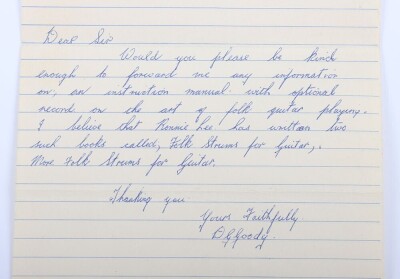 Dear Sir
Would you please be kind
enough to forward me any information
on, an instruction manual with optional
record on the art of folk guitar playing.
I believe that Ronnie Lee has written two
such books called, Folk Strums for Guitar,.
More Folk Strums for Guitar.
Thanking you
Yours Faithfully
B G Goody.